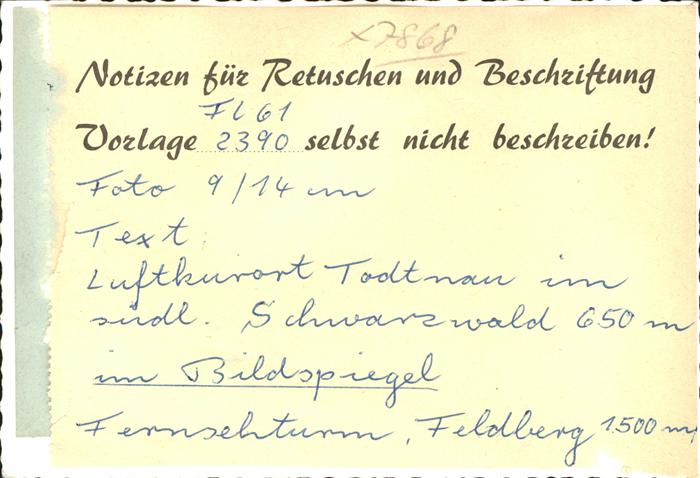 x7868
Notizen für Retuschen und Beschriftung
Fl 61
Vorlage 2390 selbst nicht beschreiben!
Foto 9/14 cm
Text
Luftkurort Todtnau im
südl. Schwarzwald 650 m
im Bildspiegel
Fernsehturm, Feldberg 1500 m